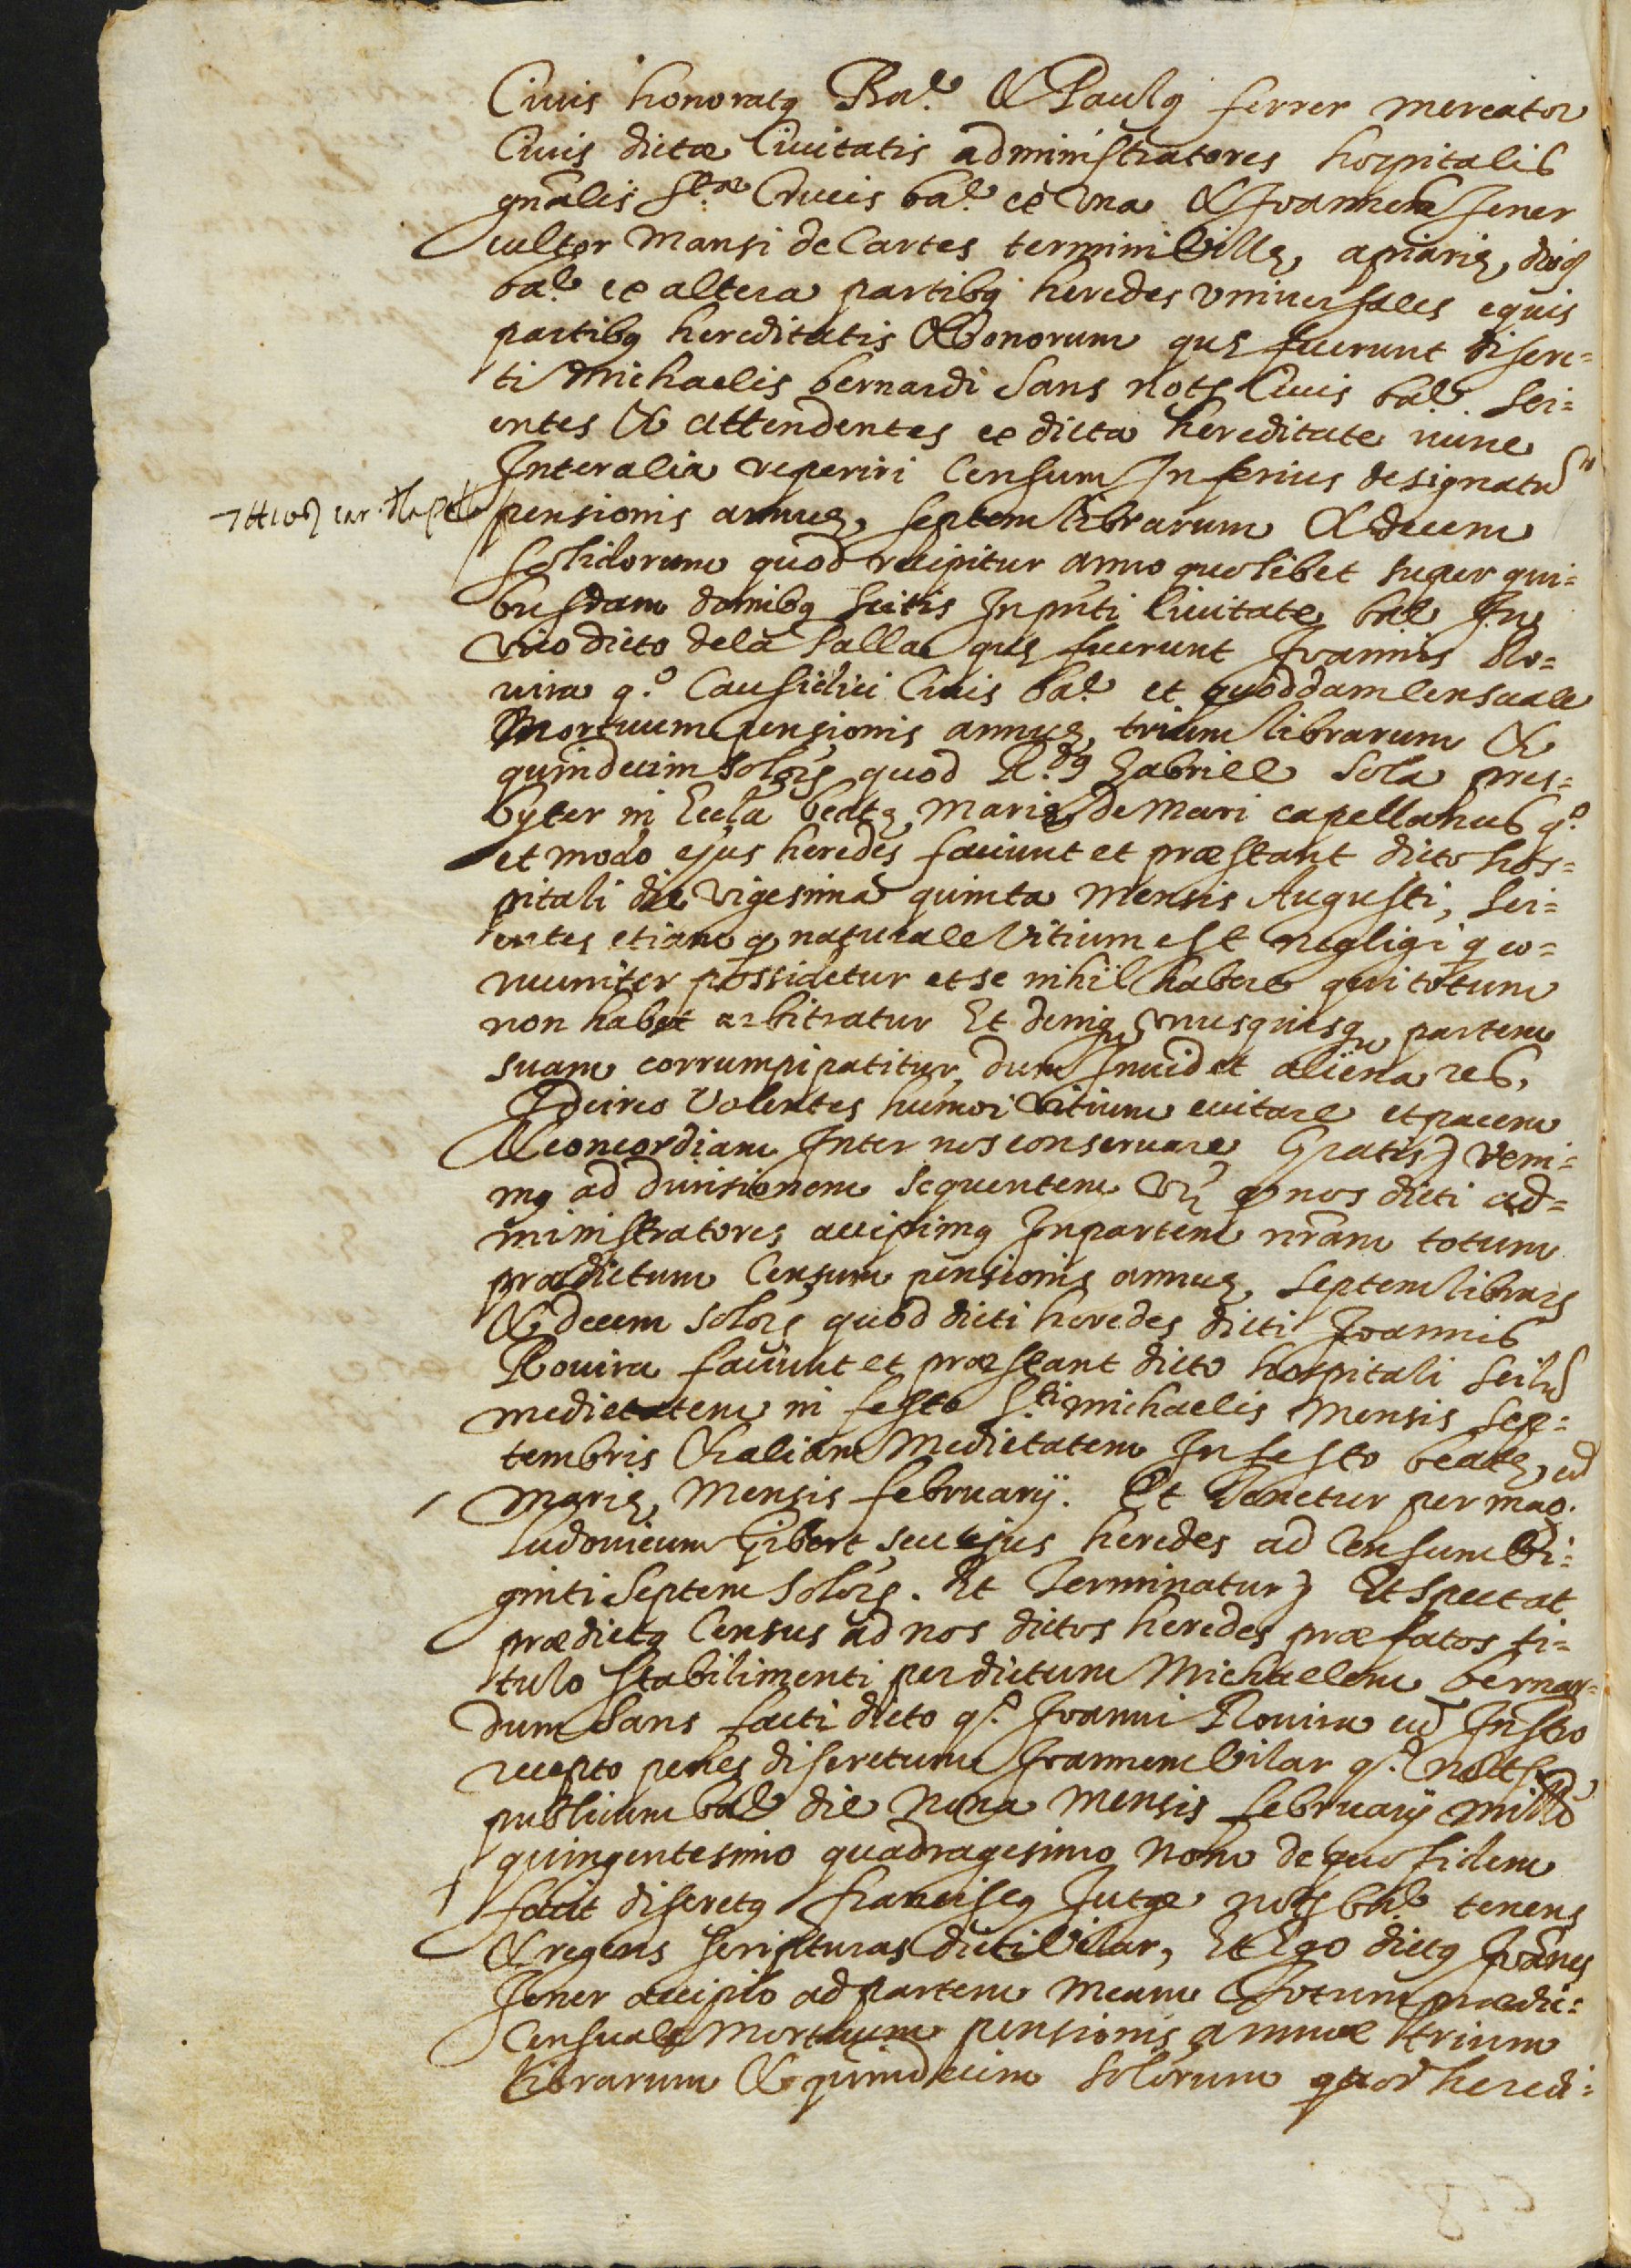 Ciuis honoratꝯ Bar.ᵉ & Paulꝯ ferrer mercator
Ciuis dictæ Ciuitatis administratores hospitalis
gn̄alis S.tæ Crucis bar.ᵉ ex vna & Joannes Jener
cultor Mansi de Cartes termini Villę, apiarię, diọc
bar.ᵉ ex altera partibꝯ heredes vniuersales equis
partibꝯ hereditatis & bonorum quę fuerunt discre=
ti Michaelis bernardi Sans notꝭ Ciuis bar.ᵉ Sci=
entes & attendentes ex dicta hereditate nunc
Inter alia reperiri Censum Inferius designatū
pensionis annuę, septem librarum & decem
Solidorum quod recipitur anno quolibet super qui=
busdam domibꝯ sitis In pn̄ti Ciuitate bar.ᵉ In
vico dicto dela Salla quę fuerunt Joannis Ro=
uira q.º Causidici Ciuis bar.ᵉ et quoddam Censuale
Mortuum pensionis annuę, trium librarum &
quindecim solorꝭ quod R.dꝯ Gabriell Sola pres=
byter in Eccla beatę Marię de Mari capellanus q.º
et modo ejus heredes faciunt et præstant dicto hos=
pitali die vigesima quinta mensis Augusti, Sci=
entes etiam q̄ naturale Vitium est negligi q̄ co=
muniter possidetur et se nihil habere qui totum
non habet arbitratur Et deniqꝫ vnusquisqꝫ partem
suam corrumpi patitur, dum Inuidet aliena res,
Idcirco Volentes humoi Vitium euitare et pacem
& concordiam Inter nos conseruare Gratis) Veni=
mꝯ ad diuisionem sequentem Vꝫ q̄ nos dicti ad=
ministratores accipimꝯ In partem nr̄am totum
prædictum Censum pensionis annuę, septem librarꝭ
& decem solorꝭ quod dicti heredes dicti Joannis
Rouira faciunt et præstant dicto hospitali Scilꝫ
medietatem in festo S.ti Michaelis Mensis Sep=
tembris & aliam Medietatem In festo beatę,
Marię, Mensis februarij. Et Tenetur per mag.
Ludouicum Gibert seu ejus heredes ad Censum Vi=
ginti Septem solorꝭ. Et Terminatur) Et spectat
prædictꝯ Census ad nos dictos heredes præfatos ti=
tulo stabilimenti per dictum Michaelem bernar=
dum Sans facti dicto q.º Joanni Rouira cū Instro
recepto penes discretum Joannem Vilar q.º nott
publicum bar.ᵉ die Nona Mensis februarij millo
quingentesimo quadragesimo Nono de quo fidem
facit discretꝯ franciscꝯ Jutge notꝭ bar.ᵉ tenens
& regens scripturas dicti Vilar, Et Ego dictꝯ Joānes
Jener accipio ad partem Meam totum prædic=
Censuale Mortuum pensionis annuæ trium
librarum & quindecim solorum quod heredi=